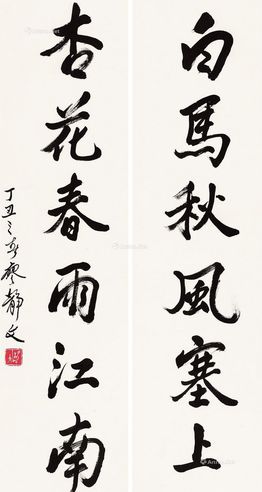 白馬秋風塞上
杏花春雨江南
丁丑之春廖靜文